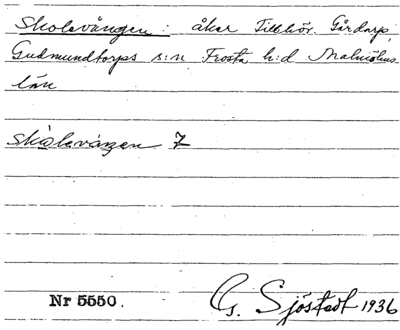 Skolevången: åker Tillhör. Gårdarp,
Gudmundtorps s:n Frosta h:d Malmöhus
län
skolevången 7
Nr 5550.
G. Sjöstedt 1936